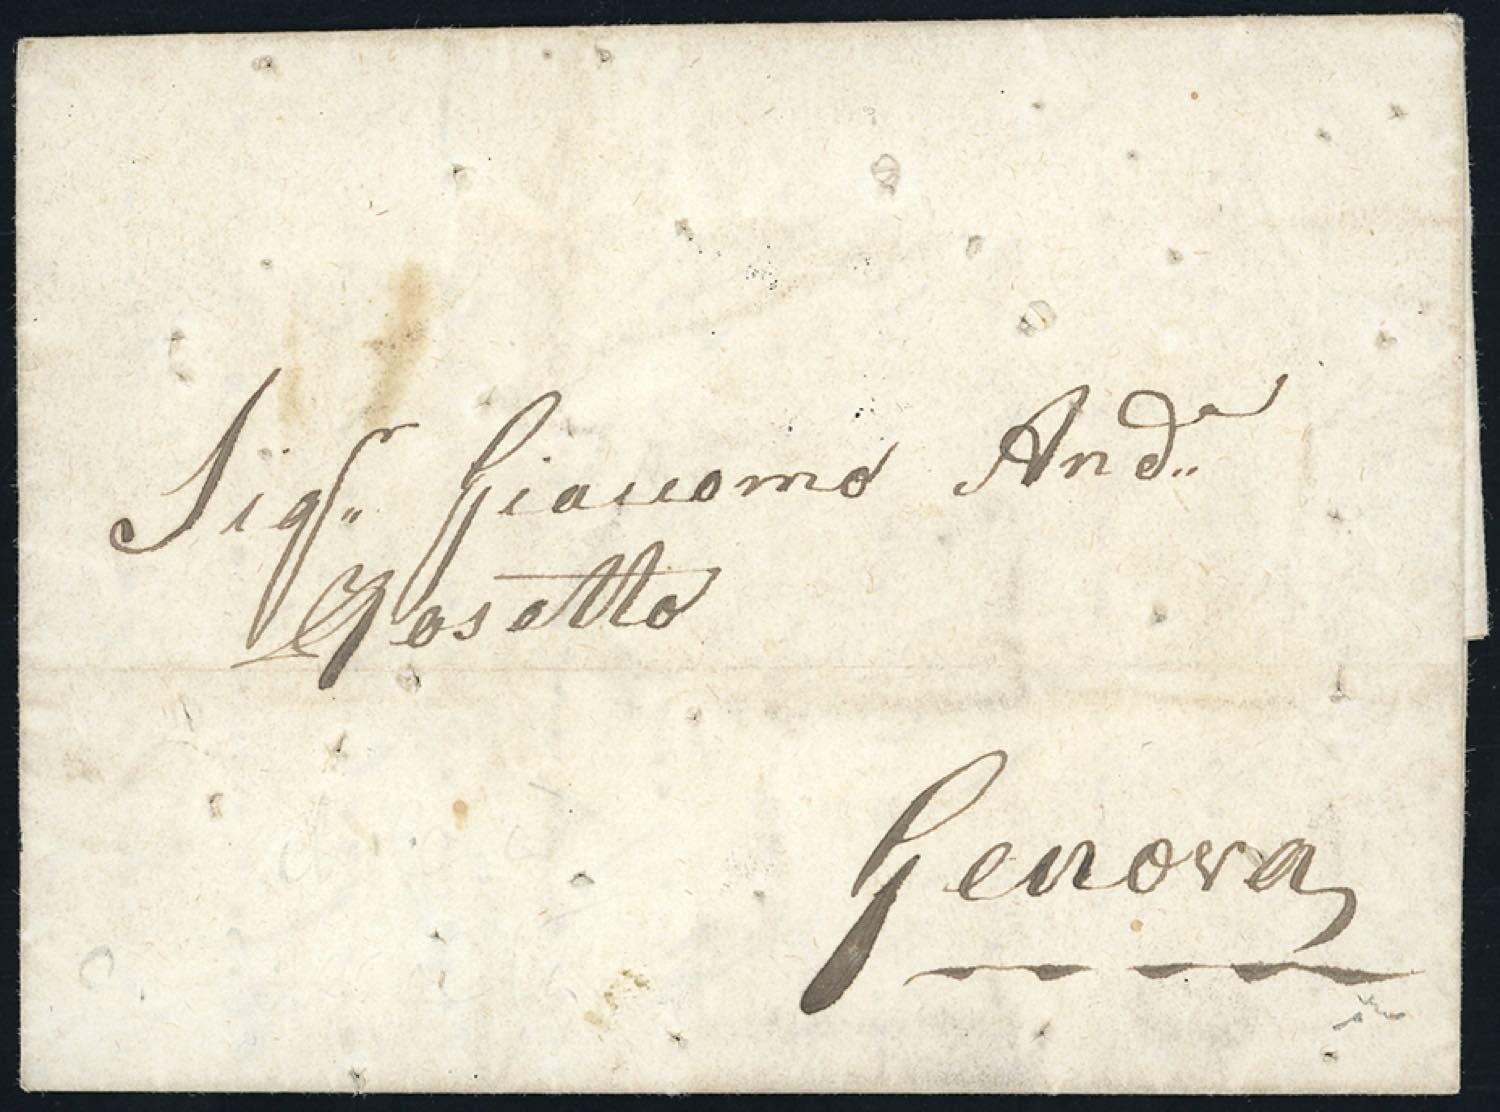 Sigr.. Giacomo Anda..
Gosetto
Genova